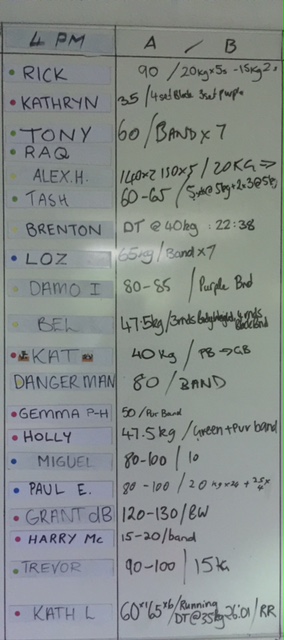 4 PM A / B
RICK 90 / 20kg x 5s - 15kg 2s
KATHRYN 35 / 4 set Black 3 set Purple
TONY 60 / BAND x 7
RAQ
ALEX.H. 140x2 130x5 / 20KG ⇒
TASH 60-65 /
BRENTON DT @ 40kg : 22:38
LOZ 65kg / Band x 7
DAMO I 80-85 / Purple Bnd
BEL 47.5kg / 3rnds Bodyweight, 4 rnds Black Band
KAT 40 Kg / PB → GB
DANGERMAN 80 / BAND
GEMMA P-H 50 / Pur Band
HOLLY 47.5kg / Green + Pur band
MIGUEL 80-100 / 10
PAUL E. 80-100 / 20 kg x 20 +
GRANT dB 120-130 / BW
HARRY Mc 15-20 / band
TREVOR 90-100 / 15kg
KATH L 60x1 65x6 / Running
/ DT @ 35kg 26:01 / RR